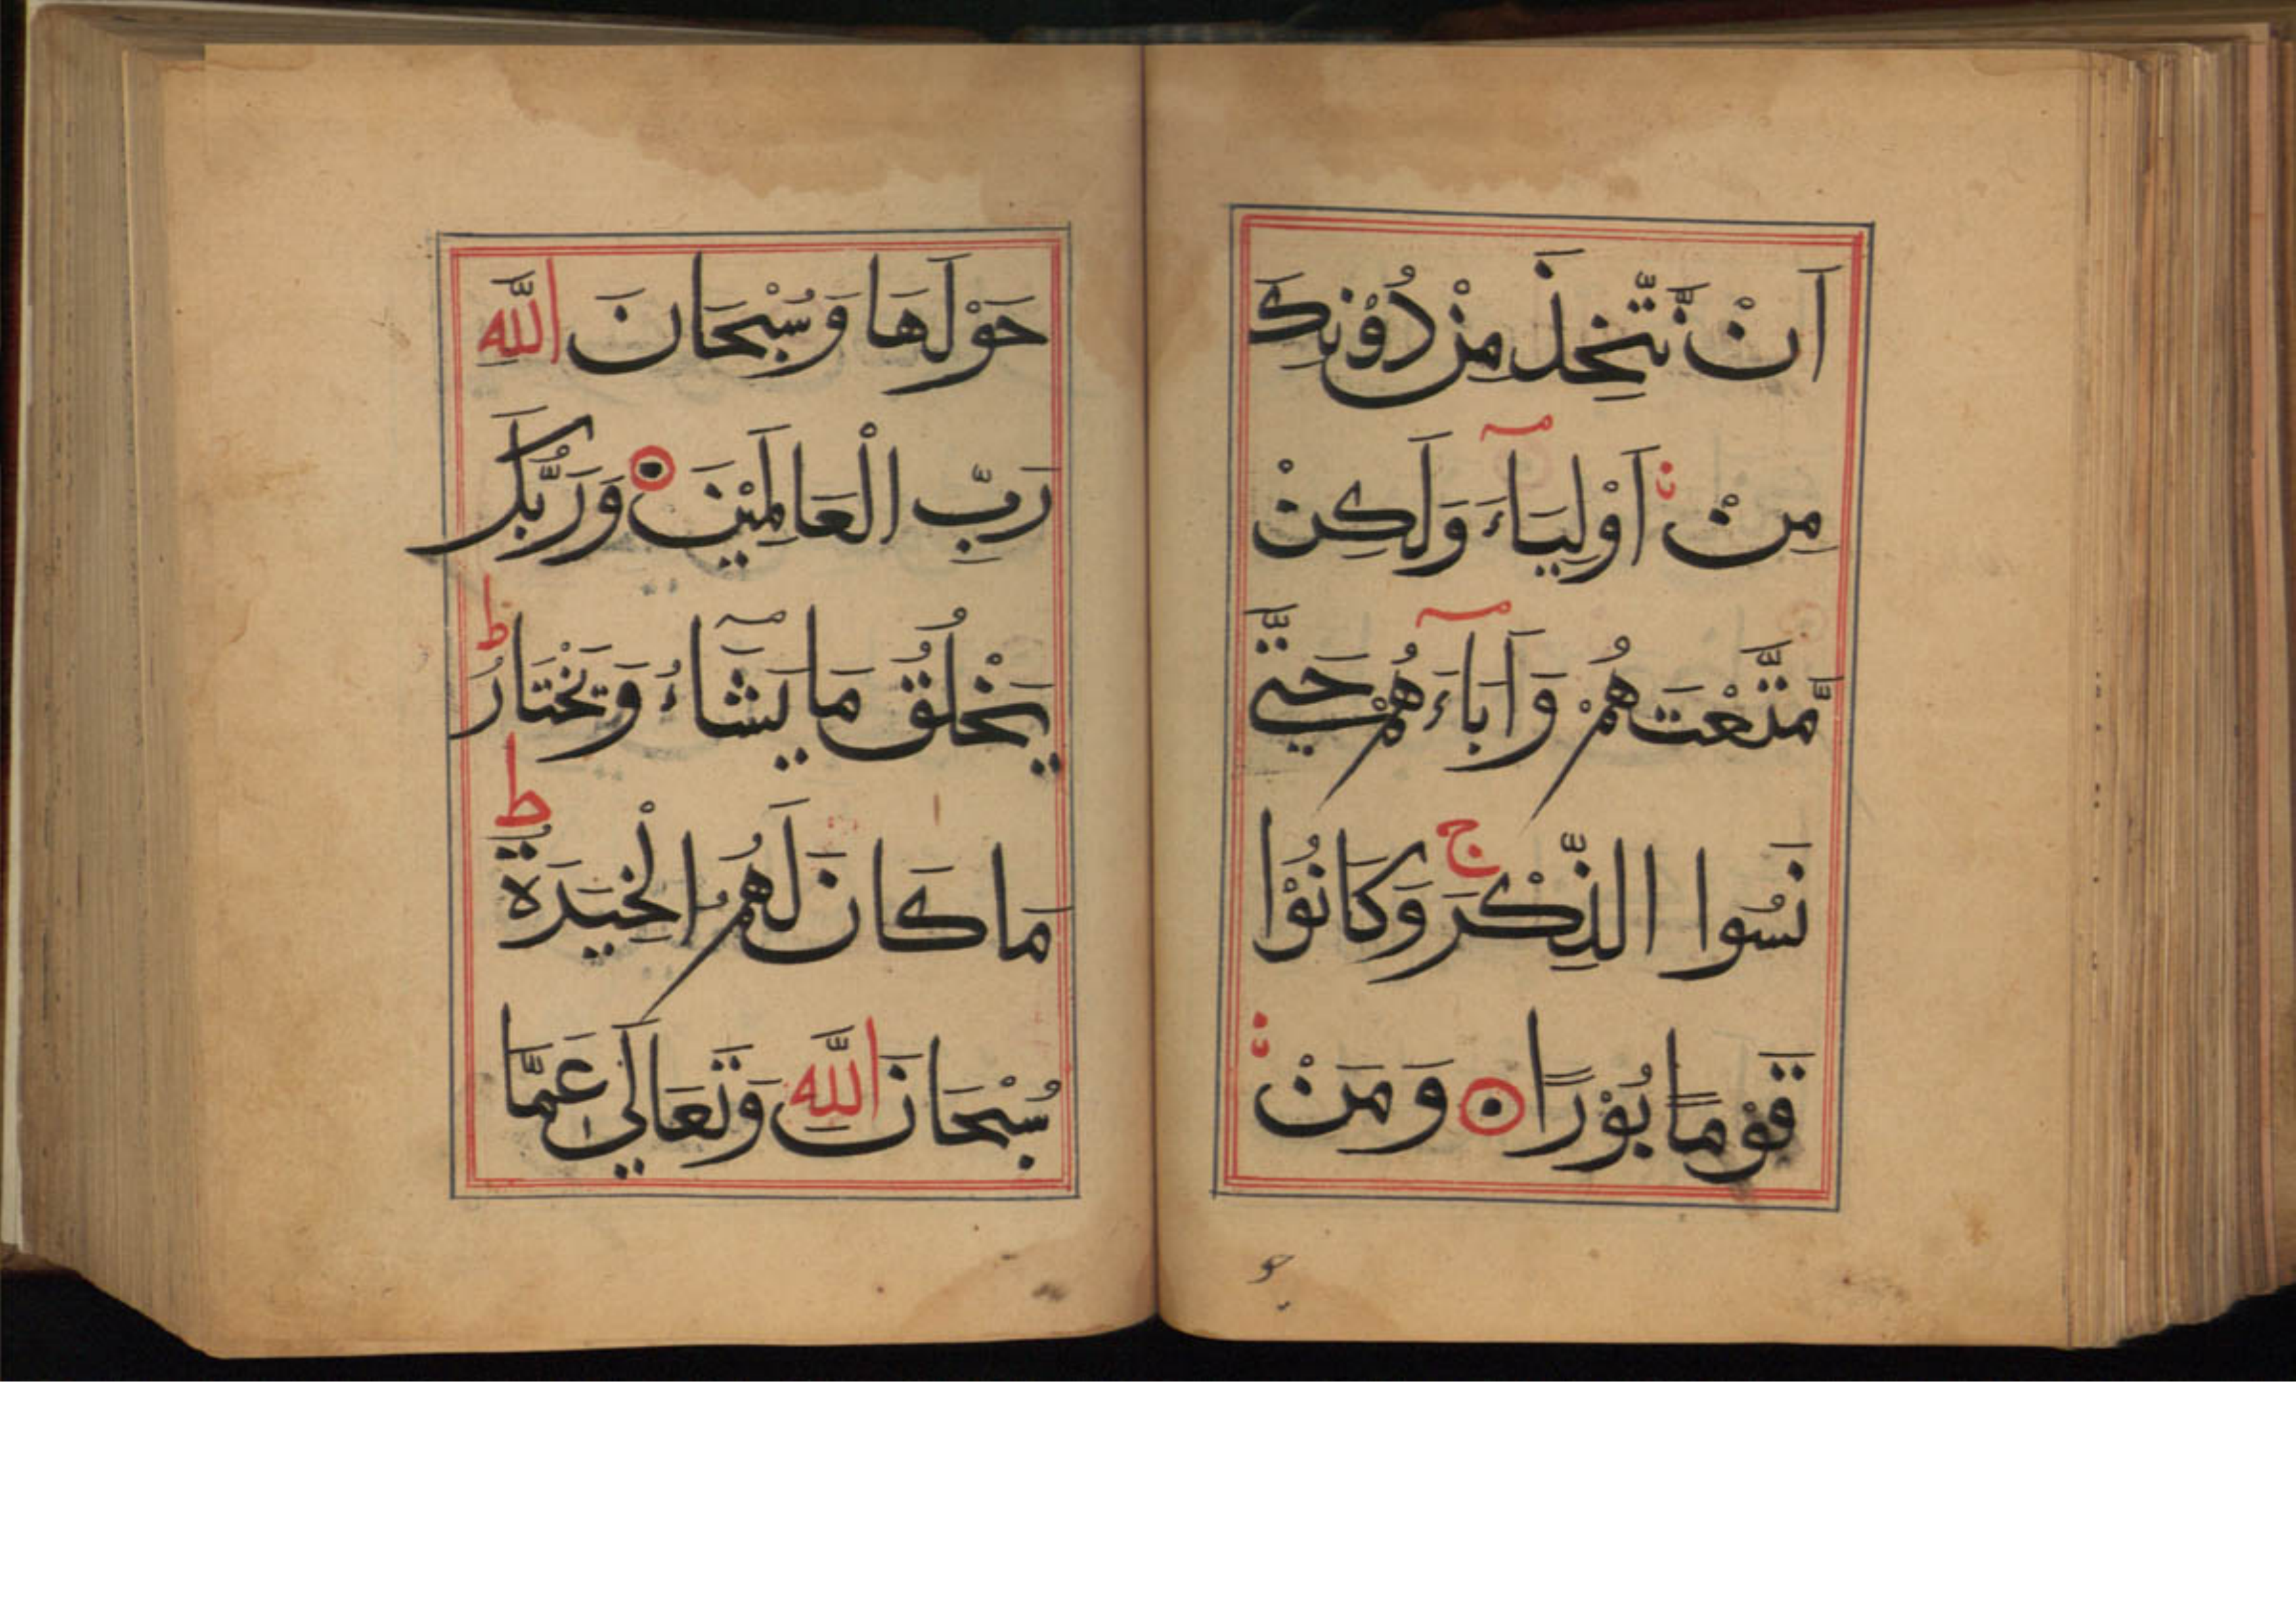 اَنْ نَّتَّخِذَ مِنْ دُوْنِكَ
مِنْ اَوْلِيَآءَ وَلَكِنْ
مَّتَّعْتَهُمْ وَاَبَآءَهُمْ حَتَّي
نَسُوا الذِّكْرَ ج وَكَانُوْا
قَوْمًا بُوْرًا وَمَنْ
حو
حَوْلَهَا وَسُبْحَانَ اللَّهِ
رَبِّ الْعَالَمِيْنَ وَرَبُّكَ
يَخْلُقُ مَا يَشَآءُ وَيَخْتَارُ ط
مَا كَانَ لَهُمُ الْخِيَرَةُ ط
سُبْحَانَ اللَّهِ وَتَعَالَي عَمَّا